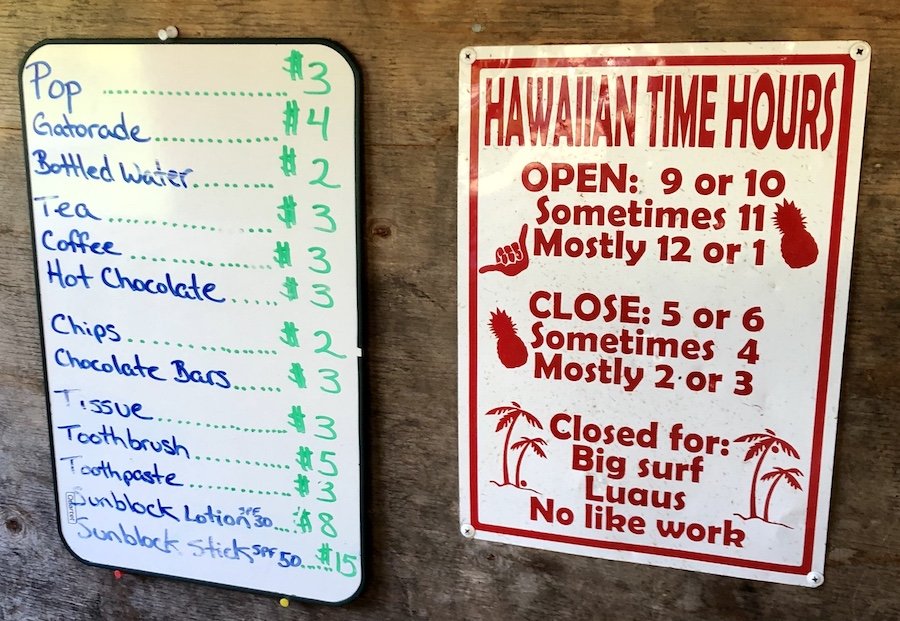 Pop .................... $3
Gatorade .............. $4
Bottled Water ......... $2
Tea .................... $3
Coffee ................. $3
Hot Chocolate ..... $3
Chips .................. $2
Chocolate Bars ...... $3
Tissue ................ $3
Toothbrush ........... $5
Toothpaste ........... $3
Sunblock Lotion SPF 30 .... $8
Sunblock Stick SPF 50 ..... $15
HAWAIIAN TIME HOURS
OPEN: 9 or 10
Sometimes 11
Mostly 12 or 1
CLOSE: 5 or 6
Sometimes 4
Mostly 2 or 3
Closed for:
Big surf
Luaus
No like work